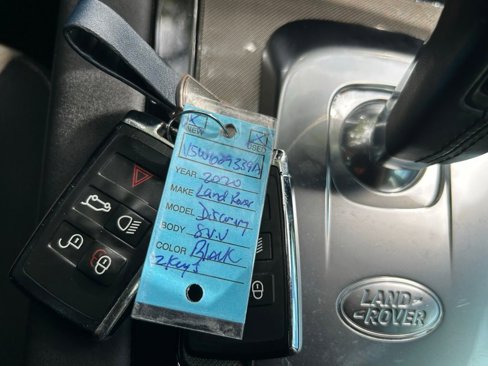 NEW
USED
YEAR 2020
MAKE Land Rover
MODEL Discovery
BODY S.U.V
COLOR Black
2 Keys
LAND-
-ROVER